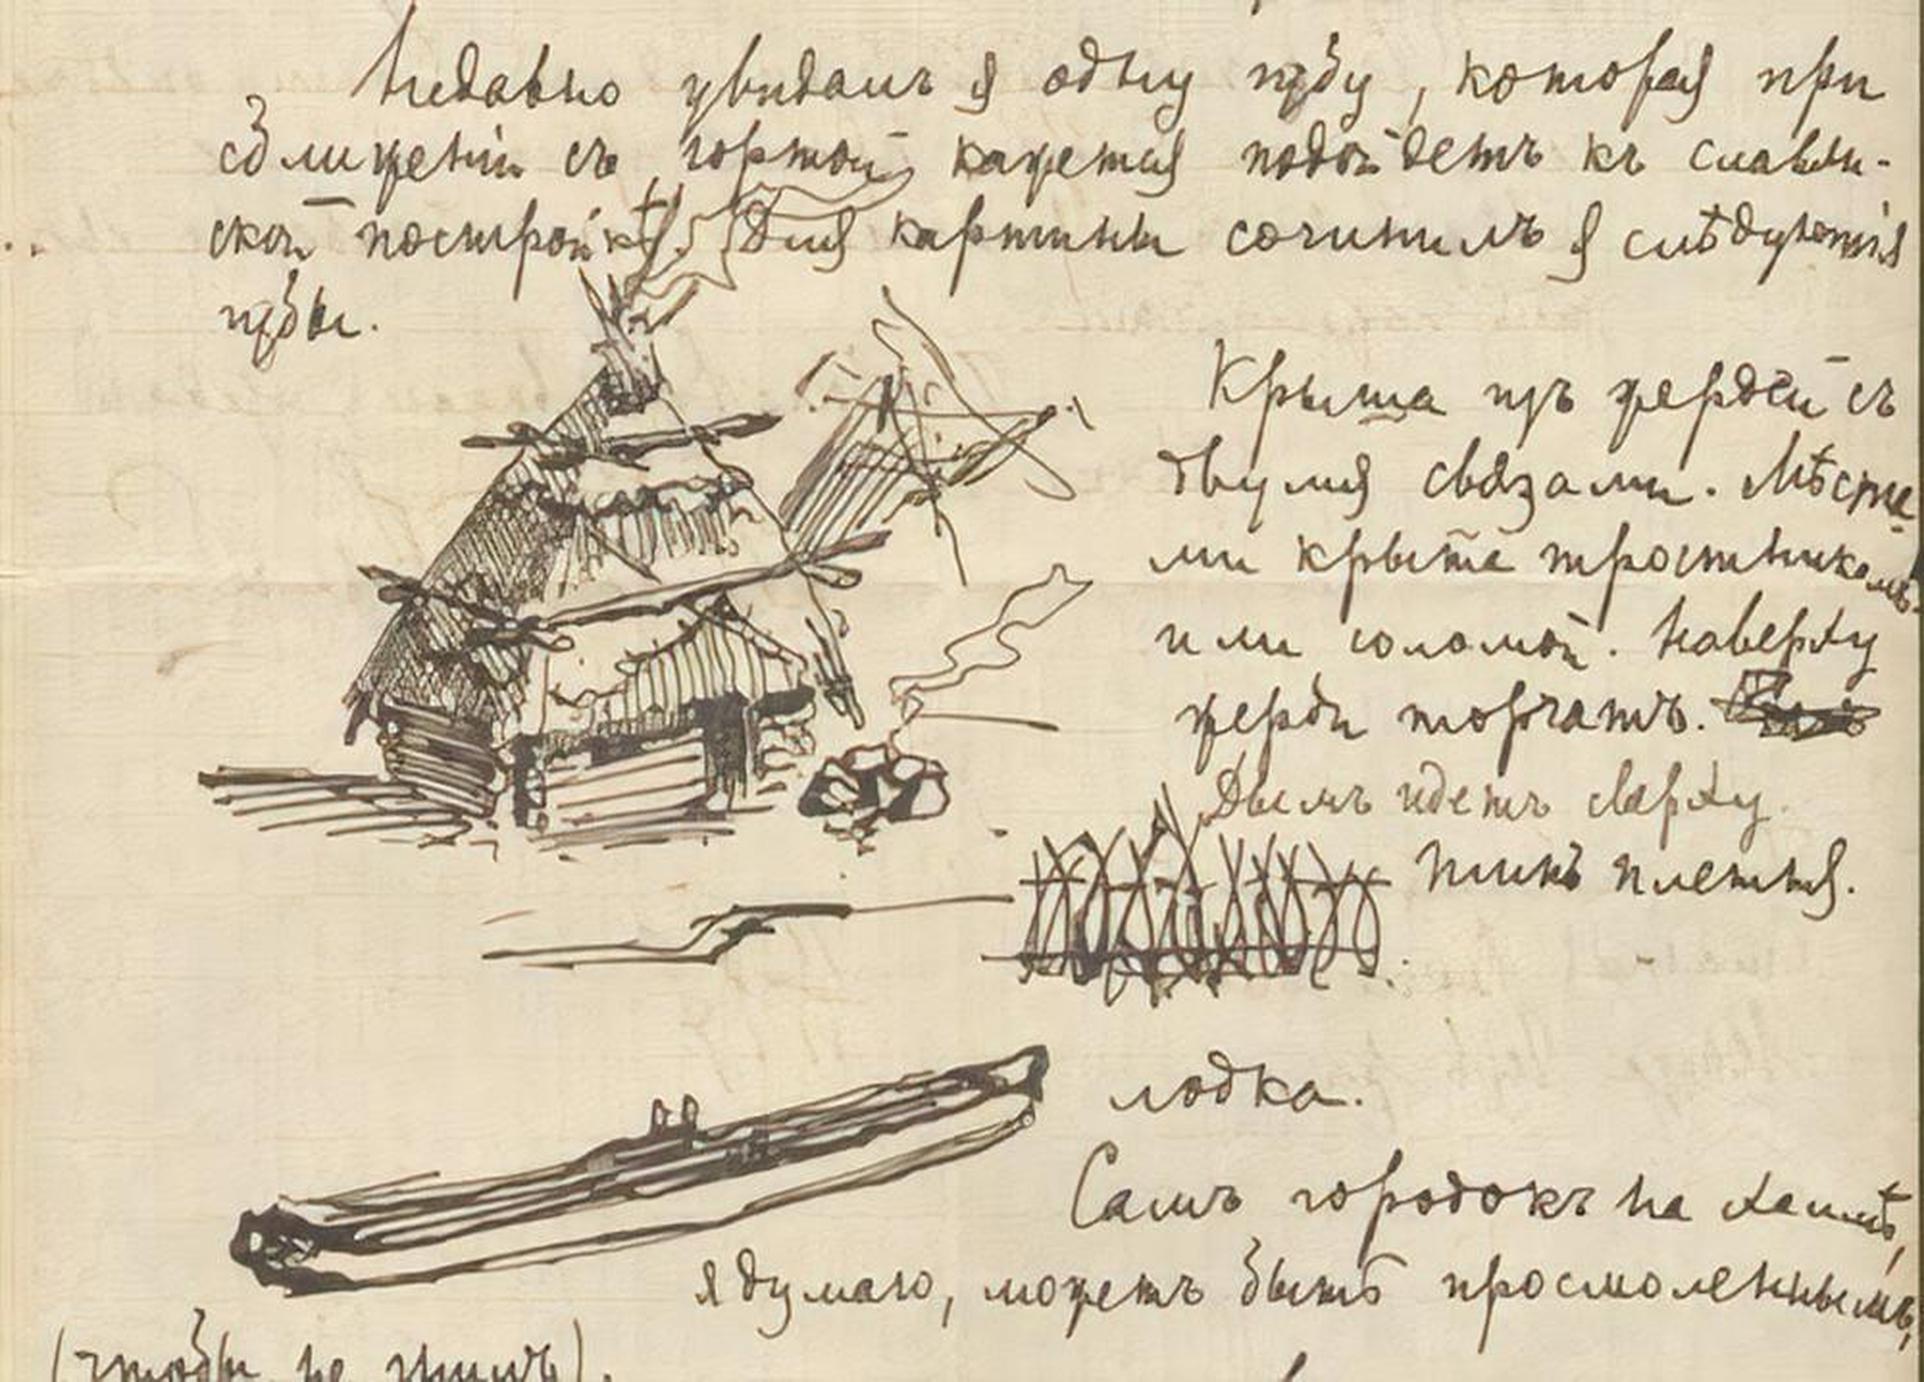 Недавно увидалъ я одну избу, которая при
сближеніи съ юртой кажется подойдетъ къ славян-
ской постройкѣ. Для картины сочинилъ я слѣдующія
избы.
Крыша изъ жердей съ
двумя связами. Мѣста-
ми крыта тростникомъ
или соломой. Наверху
жерди торчатъ.
Дымъ идетъ сверху.
плетня.
лодка.
Самъ городокъ на холмѣ,
я думаю, можетъ быть просмоленнымъ,
(чтобы не гнилъ).